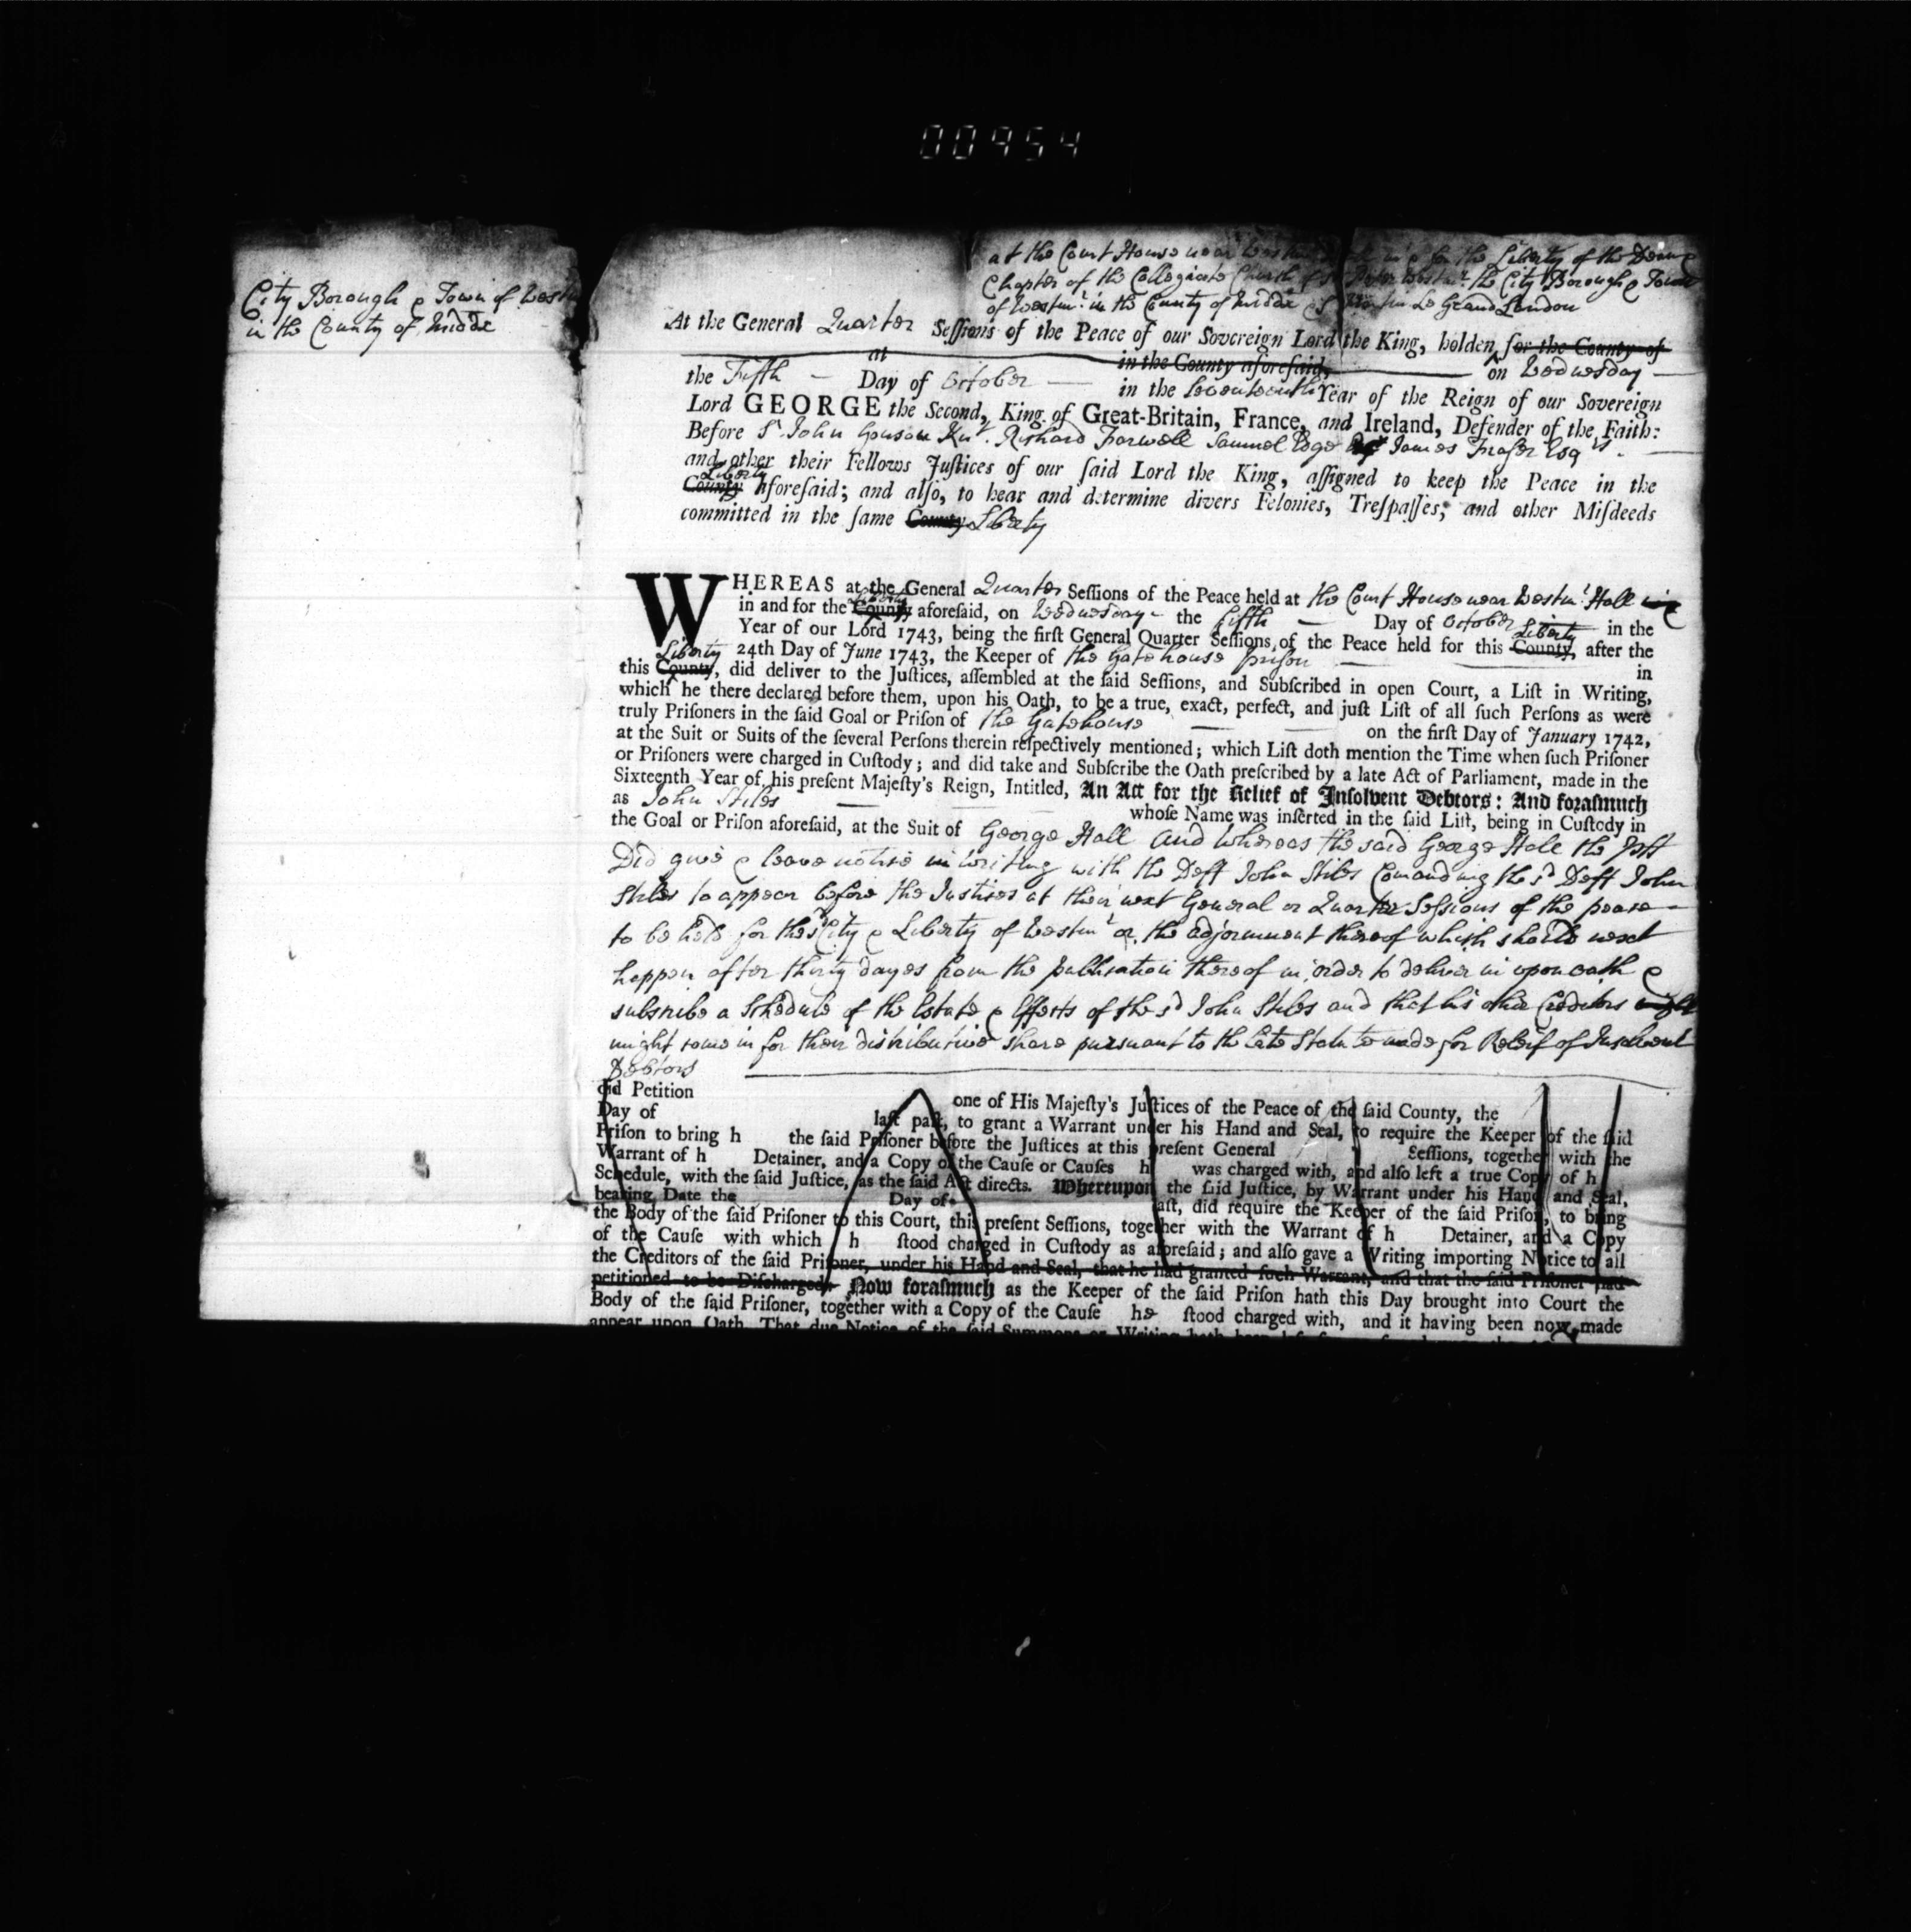 00954
City Borough & Town of Westm
in the County of Middx
at the Court House near in & for the Liberty of the Dean &
Chapter of the Collegiate Church of St Peter Westmr. the City Borough & Town
of Westmr. in the County of Middx & St Martin Le Grand London
At the General Quarter Seſſions of the Peace of our Sovereign Lord the King, holden for the County of
at in the County aforeſaid, on Wedneſday
the Fifth — Day of October — in the Seventeenth Year of the Reign of our Sovereign
Lord GEORGE the Second, King of Great-Britain, France, and Ireland, Defender of the Faith:
Before Sr. John Gonson Knt. Richard Farwell Samuel James Fraſer Esqrs.
and other their Fellows Juſtices of our ſaid Lord the King, aſſigned to keep the Peace in the
Liberty
County aforeſaid; and alſo, to hear and determine divers Felonies, Treſpaſſes, and other Miſdeeds
committed in the ſame County Liberty
WHEREAS at the General Quarter Seſſions of the Peace held at the Court House near Westmr. Hall
in and for the County Liberty aforeſaid, on Wednesday - the fifth — Day of October in the
Year of our Lord 1743, being the firſt General Quarter Seſſions of the Peace held for this County Liberty, after the
24th Day of June 1743, the Keeper of the Gatehouse prison — in
this County Liberty, did deliver to the Juſtices, aſſembled at the ſaid Seſſions, and Subſcribed in open Court, a Liſt in Writing,
which he there declared before them, upon his Oath, to be a true, exact, perfect, and juſt Liſt of all ſuch Perſons as were
truly Priſoners in the ſaid Goal or Priſon of the Gatehouse — on the firſt Day of January 1742,
at the Suit or Suits of the ſeveral Perſons therein reſpectively mentioned; which Liſt doth mention the Time when ſuch Priſoner
or Priſoners were charged in Cuſtody; and did take and Subſcribe the Oath preſcribed by a late Act of Parliament, made in the
Sixteenth Year of his preſent Majeſty's Reign, Intitled, An Act for the Relief of Inſolvent Debtors: And foraſmuch
as John Stiles — whoſe Name was inſerted in the ſaid Liſt, being in Cuſtody in
the Goal or Priſon aforeſaid, at the Suit of George Hall and whereas the said George Hall the Plff
Did give & leave notice in writing with the Deft John Stiles Comanding the sd Deft John
Stiles to appear before the Justices at their next General or Quarter Sessions of the peace
to be held for the sd City & Liberty of Westmr or the adjornment thereof which should next
happen after thirty dayes from the publication thereof in order to deliver in upon oath &
subscribe a Schedule of the Estate & Effects of the sd John Stiles and that his other Creditors might
might come in for their distributive share pursuant to the late Statute made for Releif of Insolvent
Debtors
did Petition one of His Majeſty's Juſtices of the Peace of the ſaid County, the
Day of laſt paſt, to grant a Warrant under his Hand and Seal, to require the Keeper of the ſaid
Priſon to bring h the ſaid Priſoner before the Juſtices at this preſent General Seſſions, together with the
Warrant of h Detainer, and a Copy of the Cauſe or Cauſes h was charged with, and alſo left a true Copy of h
Schedule, with the ſaid Juſtice, as the ſaid Act directs. Whereupon the ſaid Juſtice, by Warrant under his Hand and Seal,
bearing Date the Day of laſt, did require the Keeper of the ſaid Priſon, to bring
the Body of the ſaid Priſoner to this Court, this preſent Seſſions, together with the Warrant of h Detainer, and a Copy
of the Cauſe with which h ſtood charged in Cuſtody as aforeſaid; and alſo gave a Writing importing Notice to all
the Creditors of the ſaid Priſoner, under his Hand and Seal, that he had granted ſuch Warrant, and that the ſaid Priſoner had
petitioned to be Diſcharged. Now foraſmuch as the Keeper of the ſaid Priſon hath this Day brought into Court the
Body of the ſaid Priſoner, together with a Copy of the Cauſe he ſtood charged with, and it having been now made
appear upon Oath, That due Notice of the ſaid Summons or Writing hath